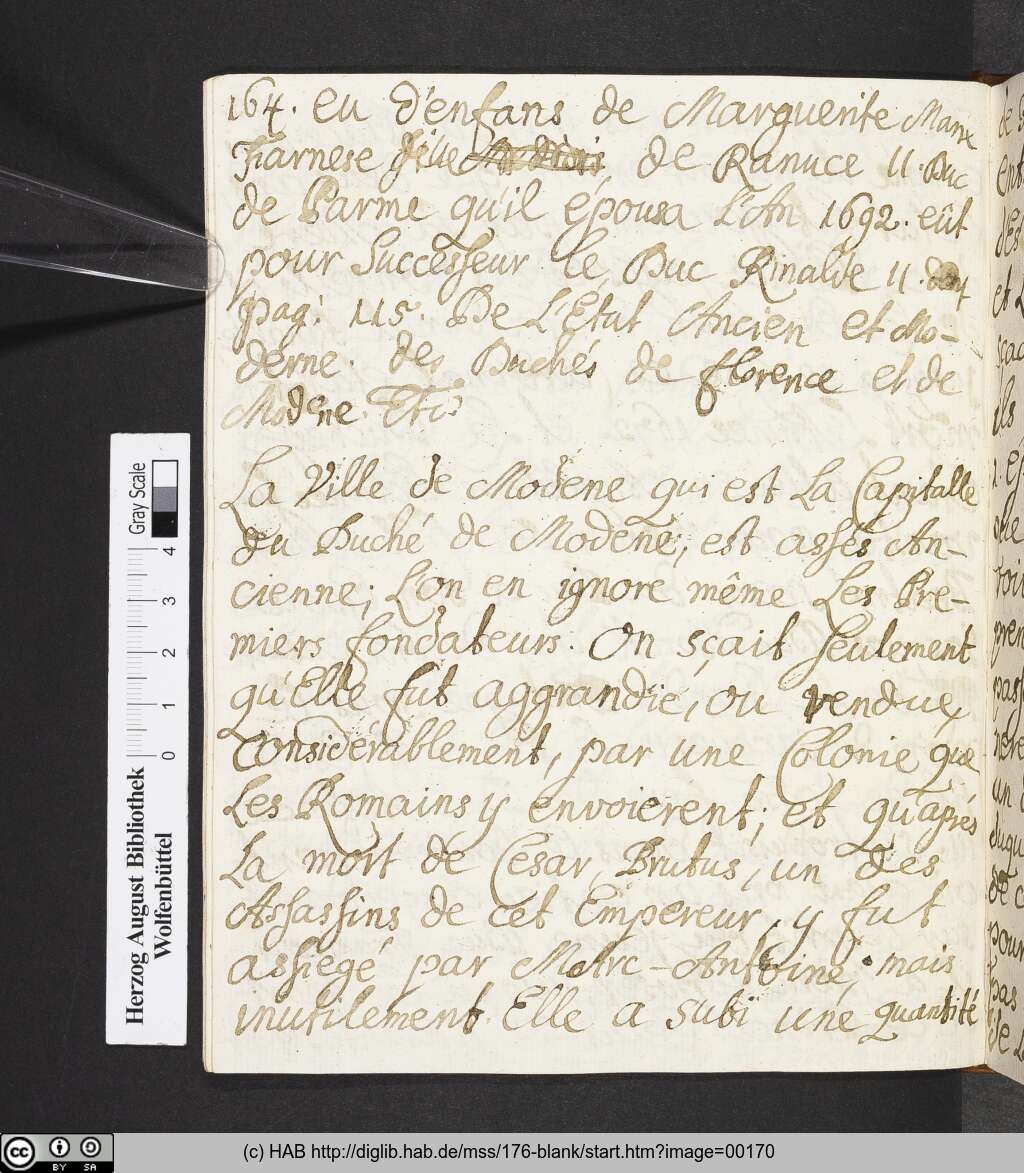 164. eu d'enfans de Marguerite Marie
Farnese fille de Ranuce II. Duc
de Parme qu'il épousa L'An 1692. eût
pour Successeur le Duc Rinalde II.
pag: 115. De L'Etat Ancien et Mo-
derne des Duchés de florence et de
Modene.
La Ville de Modene qui est La Capitalle
du Duché de Modene, est assés An-
cienne; L'on en ignore même Les Pre-
miers fondateurs. On sçait seulement
qu'Elle fut aggrandie, ou vendue
Considérablement, par une Colonie que
Les Romains y envoierent; et qu'aprés
La mort de Cesar, Brutus, un des
Assassins de cet Empereur, y fut
assiegé par Marc-Antoine, mais
inutilement. Elle a subi une quantité
Herzog August Bibliothek
Wolfenbüttel
Gray Scale
0 1 2 3 4
cc BY SA
(c) HAB http://diglib.hab.de/mss/176-blank/start.htm?image=00170